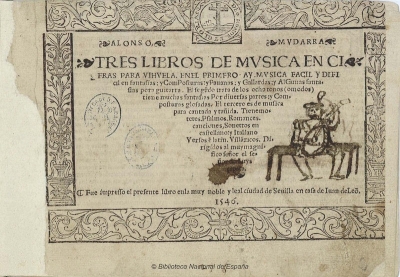 ALONSO, MVDARRA
TRES LIBROS DE MVSICA EN CI
FRAS PARA VIHVELA. EN EL PRIMERO AY MVSICA FACIL Y DIFI
cil en fantasias: y Composturas: y Pauanas: y Gallardas: y Algunas fanta
sias pera guitarra. El segũdo trata de los ocho tonos (o modos)
tiene muchas fantasias Por diuersas partes: y Com
posturas glosadas. El tercero es de musica
para cantada y tañida. Tiene mo
tetes, Psalmos, Romances,
canciones, Sonetos en
castellano y Italiano
Versos Latin. Villãcicos. Di
rigidos al muy magni
fico señor el se
ñor
¶ Fue impresso el presente libro enla muy noble y leal ciudad de Seuilla en casa de Iuan de Leõ.
1546.
© Biblioteca Nacional de España